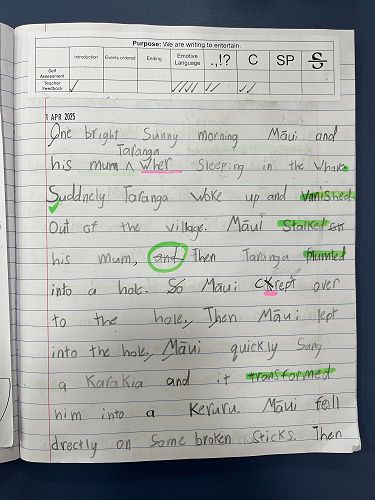 Purpose: We are writing to entertain.
Introduction Events ordered Ending Emotive Language .,!? C SP S
Self Assessment
Teacher Feedback ✓ ✓✓✓✓ ✓✓ ✓✓
1 APR 2025
One bright Sunny morning Māui and
Taranga
his mum ^ wher Sleeping in the Whare.
Suddnely Taranga woke up and vanished
Out of the village. Māui Stalked on
his mum, and Then Taranga plumted
into a hole. So Māui crept over
to the hole, Then Māui lept
into the hole, Māui quickly Sang
a Karakia and it transformed
him into a Keruru. Māui fell
drectly on Some broken Sticks. Then